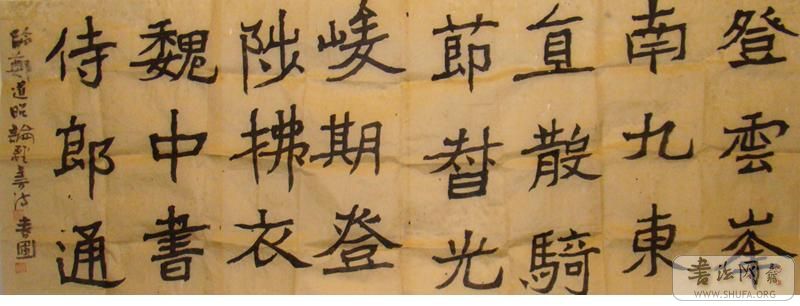 登雲峯
南九東
直散騎
節督光
峻期登
陟拂衣
魏中書
侍郎通
臨鄭道昭論經書詩 書國
書法网
WWW.SHUFA.ORG